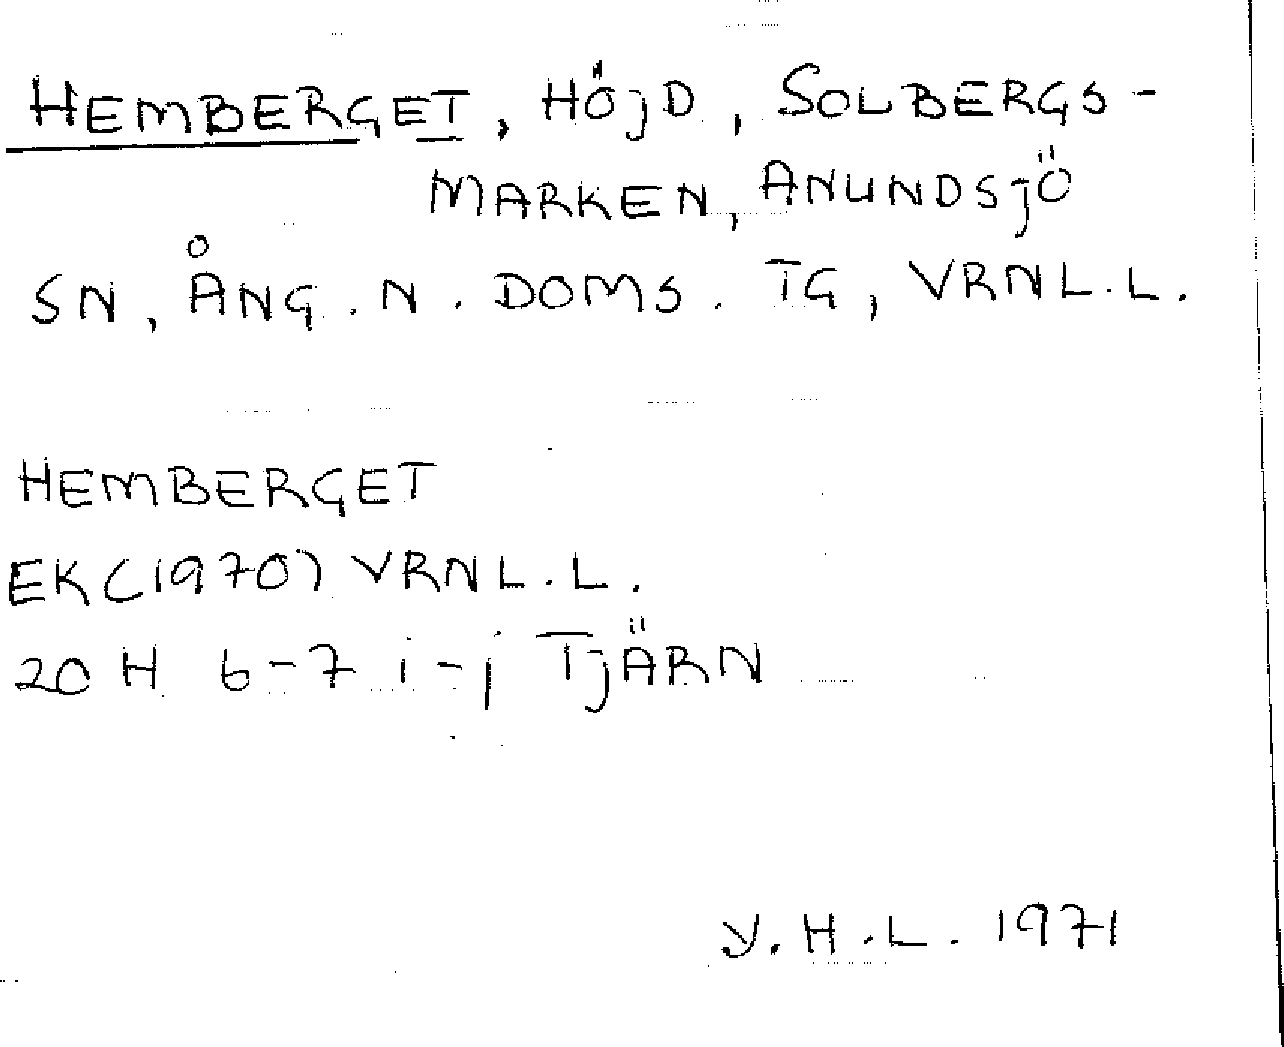 HEMBERGET, HÖjD, SOLBERGS-
MARKEN, ANUNDSjÖ
SN, ÅNG. N. DOMS. TG, VRNL.L.
HEMBERGET
EK(1970) VRNL.L.
20 H 6-7 i-j TjÄRN
Y.H.L. 1971